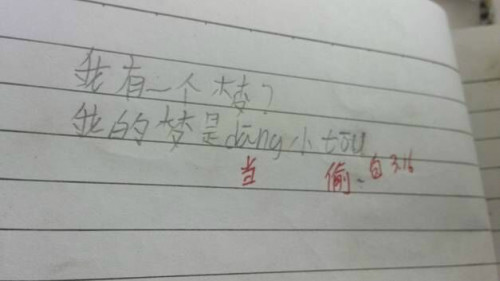 我有一个梦?
我的梦是dāng小tōu
当 偷 3.16